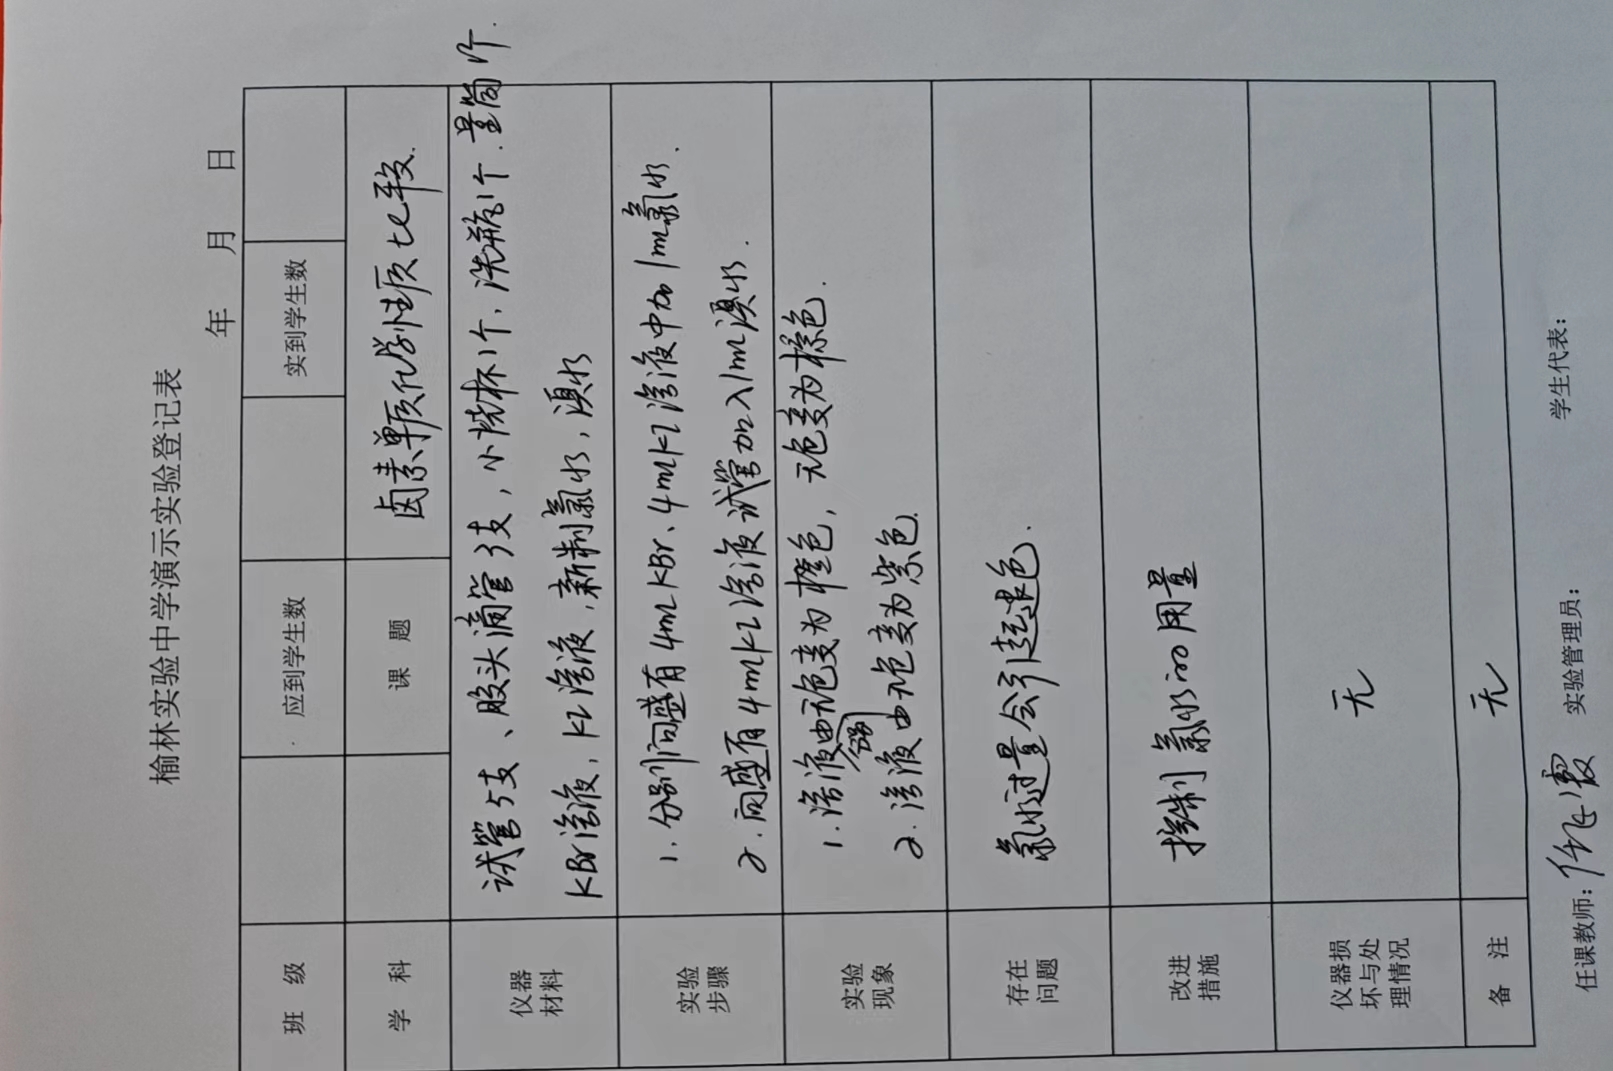 榆林实验中学演示实验登记表
年 月 日
班 级 应到学生数 实到学生数
学 科 课 题 卤素单质化学性质比较.
仪器材料 试管5支、胶头滴管3支,小烧杯1个,洗瓶1个.量筒1个.
KBr溶液,KI溶液,新制氯水,溴水
实验步骤 1.分别向盛有4mLKBr、4mLKI溶液中加1mL氯水.
2.向盛有4mLKI溶液试管加入1mL溴水.
实验现象 1.溶液分别由无色变为橙色,无色变为棕色.
2.溶液由无色变为紫色.
存在问题 氯水过量会引起退色.
改进措施 控制氯水的用量
仪器损坏与处理情况 无
备 注 无
任课教师: 实验管理员: 学生代表: